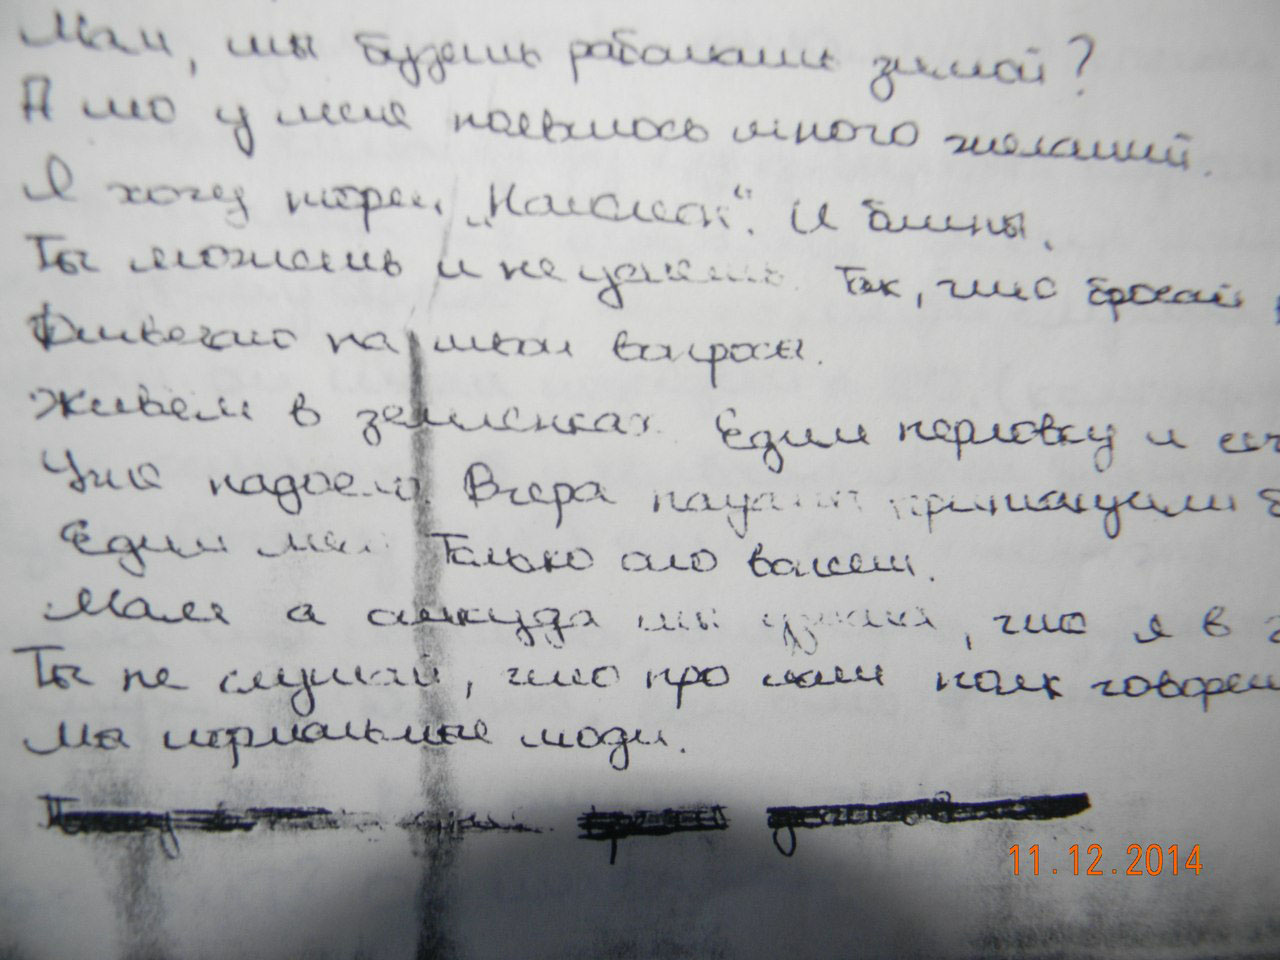 Мам, ты будешь работать зимой?
А то у меня появилось много желаний.
Я хочу торт „Наполеон“. И блины.
Ты можешь и не успеть. Так, что бросай
Отвечаю на твои вопросы.
Живём в землянках. Едим перловку и
Уже надоело. Вчера пацаны притащили
Едим мы. Только его валом.
Мам а откуда ты узнала, что я в
Ты не слушай, что про наш полк говорят
Мы нормальные люди.
11.12.2014